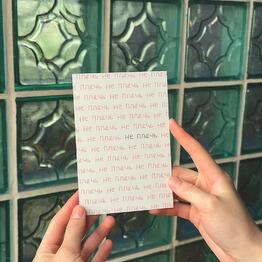 не плачь не плачь не плачь
плачь не плачь не плачь не
не плачь не плачь не плачь
плачь не плачь не плачь не
не плачь не плачь не плачь
плачь не плачь не плачь не
не плачь не плачь не плачь
плачь не плачь не плачь не
не плачь не плачь не плачь
плачь не плачь не плачь не
не плачь не плачь не плачь
плачь не плачь не плачь